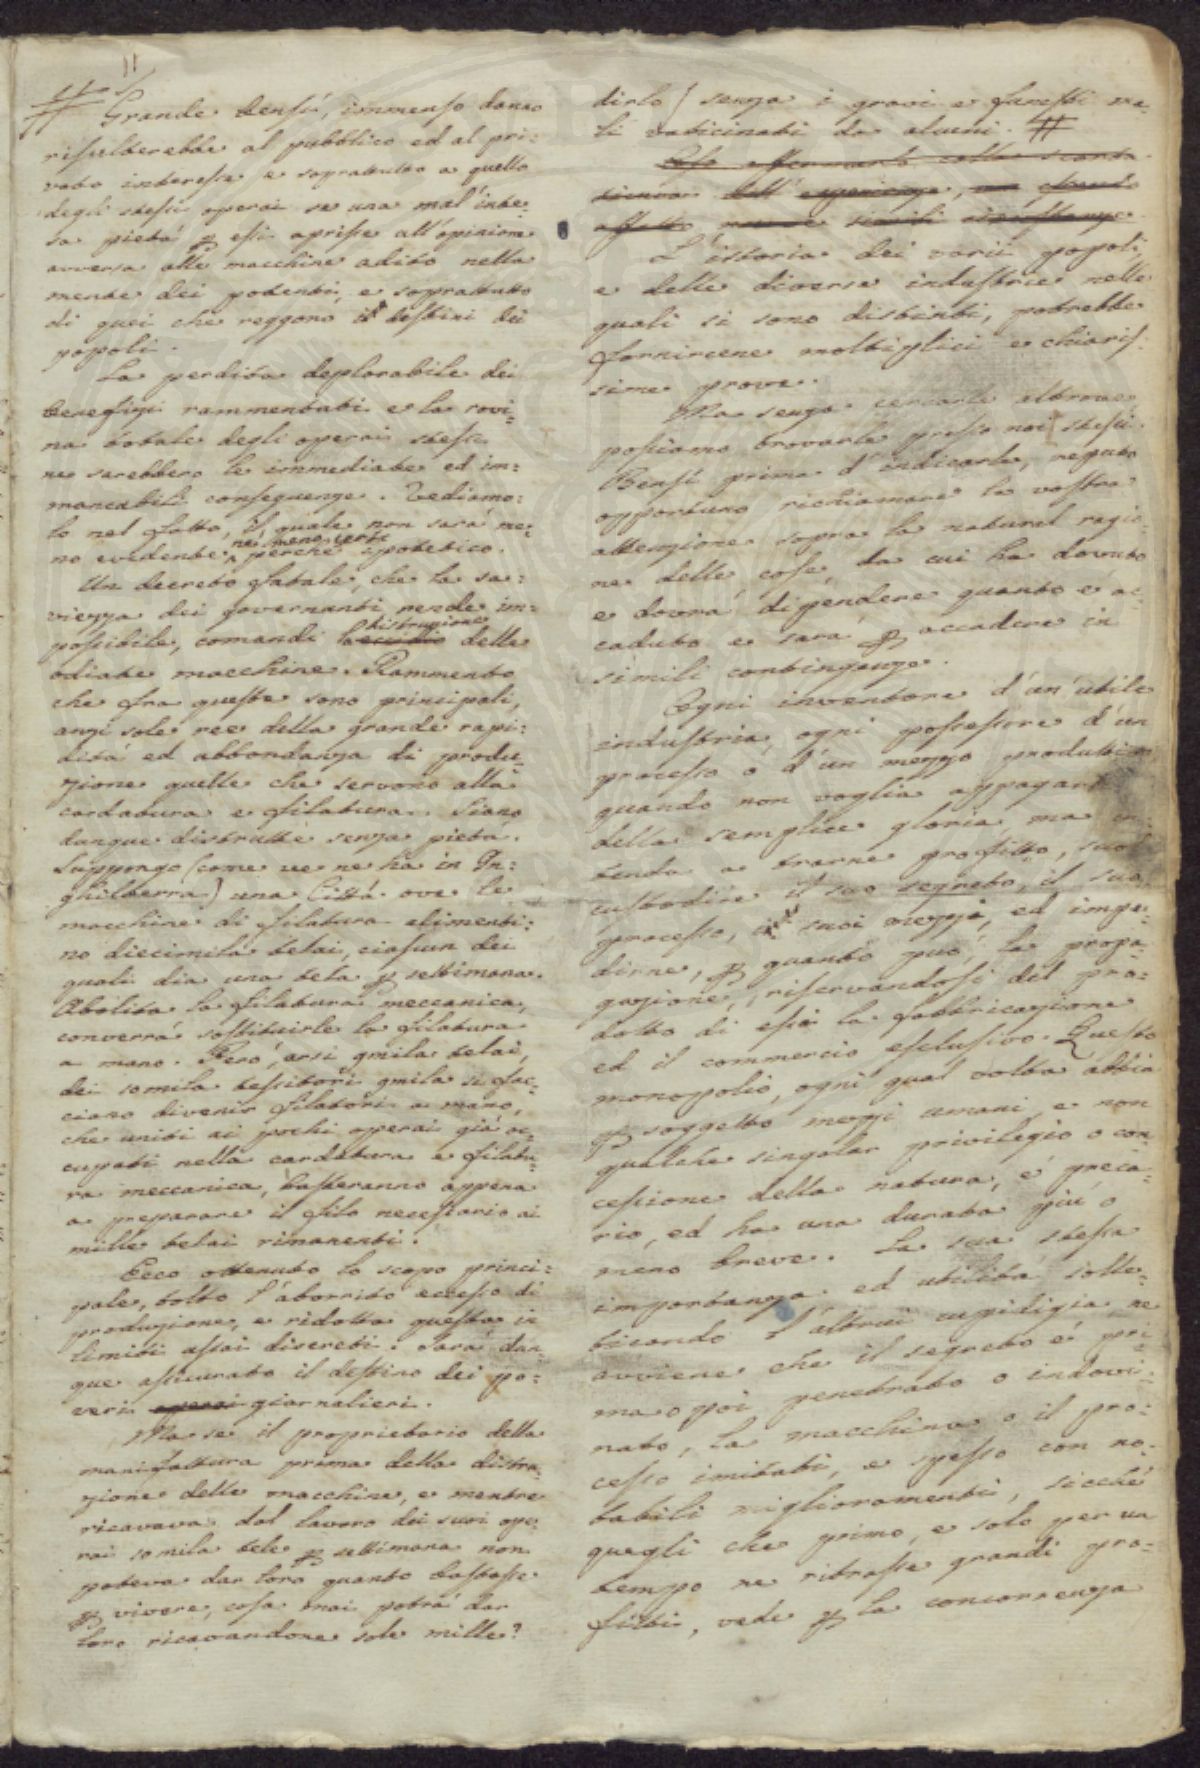 11
Grande bensí, immenso danno
risulterebbe al pubblico ed al pri:
vato interesse e sopratutto a quello
degli stessi operai se una mal'inte:
sa pietá p essi aprisse all'opinione
avversa alle macchine adito nella
mente dei potenti, e soprattutto
di quei che reggono i destini dei
popoli.
La perdita deplorabile dei
benefizi rammentati e la rovi:
na totale degli operai stessi
ne sarebbero le immediate ed im:
mancabili conseguenze. Vediamo:
lo nel fatto, il quale non sará me:
no evidente, né meno certo perchè ipotetico.
Un decreto fatale, che la sa:
viezza dei governanti rende im:
possibile, comandi la distruzione delle
odiate macchine. Rammento
che fra queste sono principali,
anzi sole ree della grande rapi:
ditá ed abbondanza di produ:
zione quelle che servono alla
cardatura e filatura. Siano
dunque distrutte senza pietá.
Suppongo (come ve ne ha in In:
ghilterra) una Cittá ove le
macchine di filatura alimenti:
no diecimila telai, ciascun dei
quali dia una tela p settimana.
Abolita la filatura meccanica,
converrá sostituirle la filatura
a mano. Peró, arsi 9mila telai,
dei 10mila tessitori 9mila si fac:
ciano divenir filatori a mano,
che uniti ai pochi operai giá oc:
cupati nella cardatura e filatu:
ra meccanica, basteranno appena
a preparare il filo necessario ai
mille telai rimanenti.
Ecco ottenuto lo scopo princi:
pale, tolto l'aborrito eccesso di
produzione, e ridotta questa in
limiti assai discreti. Sará dun:
que assicurato il destino dei po:
veri operai giornalieri.
Ma se il proprietario della
manifattura prima della distru:
zione delle macchine, e mentre
ricavava dal lavoro dei suoi ope:
rai 10mila tele p settimana non
poteva dar loro quanto bastasse
p vivere, cosa mai potrá dar
loro ricavandone sole mille?
dirlo) senza i gravi e funesti ma:
li vaticinati da alcuni. #
affermarlo colla
dell' esperienza, essendo
simili circostanze
L'istoria dei varii popoli,
e delle diverse industrie nelle
quali si sono distinti, potrebbe
fornircene moltiplici e chiaris:
sime prove.
Ma senza cercarle altrove
possiamo trovarle presso noi stessi.
Bensí prima d'indicarle, reputo
opportuno richiamare la vostra
attenzione sopra la natural ragio:
ne delle cose, da cui ha dovuto
e dovrá dipendere quanto è ac:
caduto e sará p accadere in
simili contingenze.
Ogni inventore d'un'utile
industria, ogni possessore d'un
processo o d'un mezzo produttivo
quando non voglia appagarsi
della semplice gloria, ma in:
tenda a trarne profitto, suol
custodire il suo segreto, il suo
processo, i suoi mezzi, ed impe:
dirne, p quanto puó, la propa:
gazione, riservandosi del pro:
dotto di essi la fabbricazione
ed il commercio esclusivo. Questo
monopolio, ogni qual volta abbia
p soggetto mezzi umani, e non
qualche singolar privilegio o con:
cessione della natura, è preca:
rio, ed ha una durata piú o
meno breve. La sua stessa
importanza ed utilitá solle:
ticando l'altrui cupidigia, ne
avviene che il segreto è pri:
ma o poi penetrato o indovi:
nato, la macchina o il pro:
cesso imitati, e spesso con no:
tabili miglioramenti, sicchè
quegli che primo, e solo per un
tempo ne ritrasse grandi pro:
fitti, vede p la concorrenza